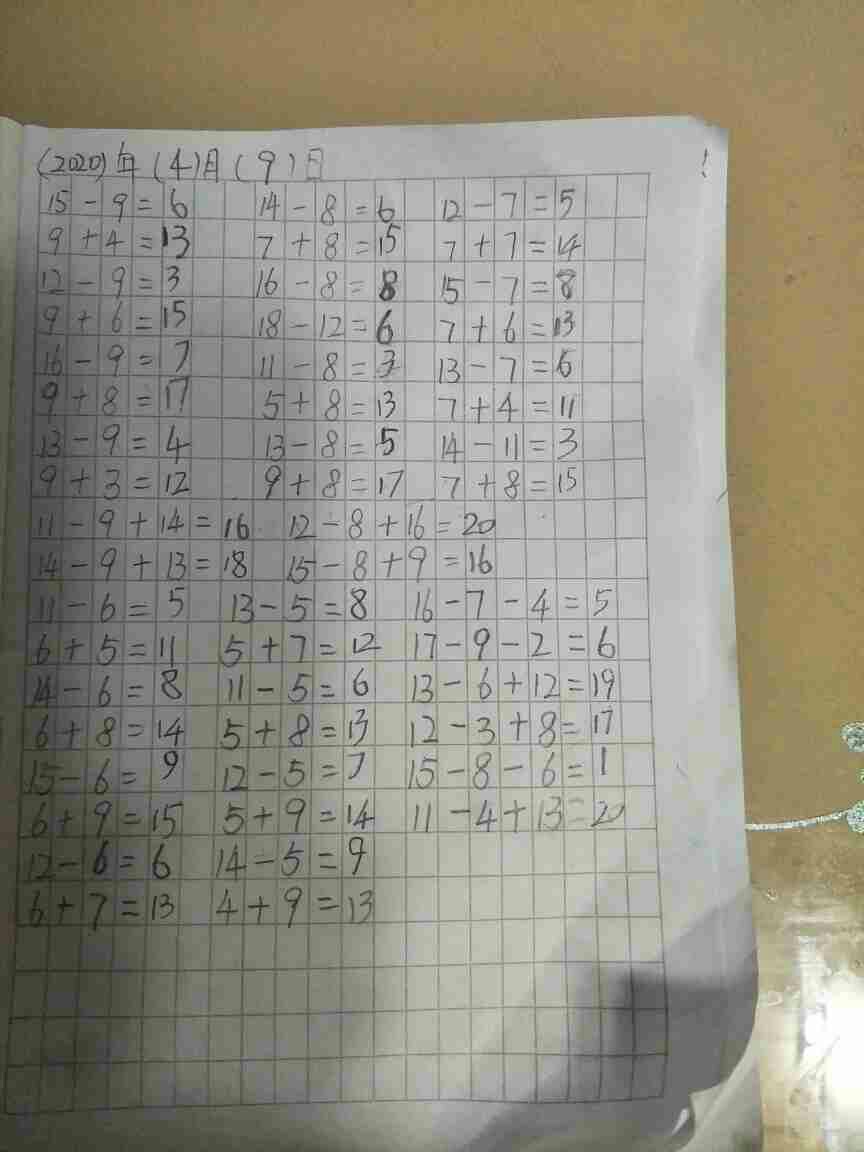 (2020)年(4)月(9)日
15-9=6 14-8=6 12-7=5
9+4=13 7+8=15 7+7=14
12-9=3 16-8=8 15-7=8
9+6=15 18-12=6 7+6=13
16-9=7 11-8=3 13-7=6
9+8=17 5+8=13 7+4=11
13-9=4 13-8=5 14-11=3
9+3=12 9+8=17 7+8=15
11-9+14=16 12-8+16=20
14-9+13=18 15-8+9=16
11-6=5 13-5=8 16-7-4=5
6+5=11 5+7=12 17-9-2=6
14-6=8 11-5=6 13-6+12=19
6+8=14 5+8=13 12-3+8=17
15-6=9 12-5=7 15-8-6=1
6+9=15 5+9=14 11-4+13=20
12-6=6 14-5=9
6+7=13 4+9=13